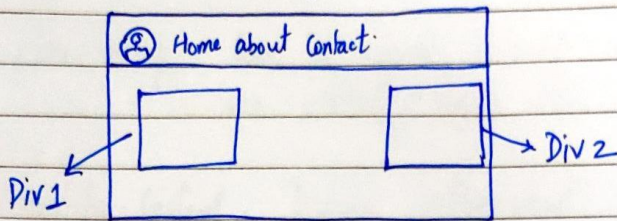 Home about Contact.
Div 2
Div 1